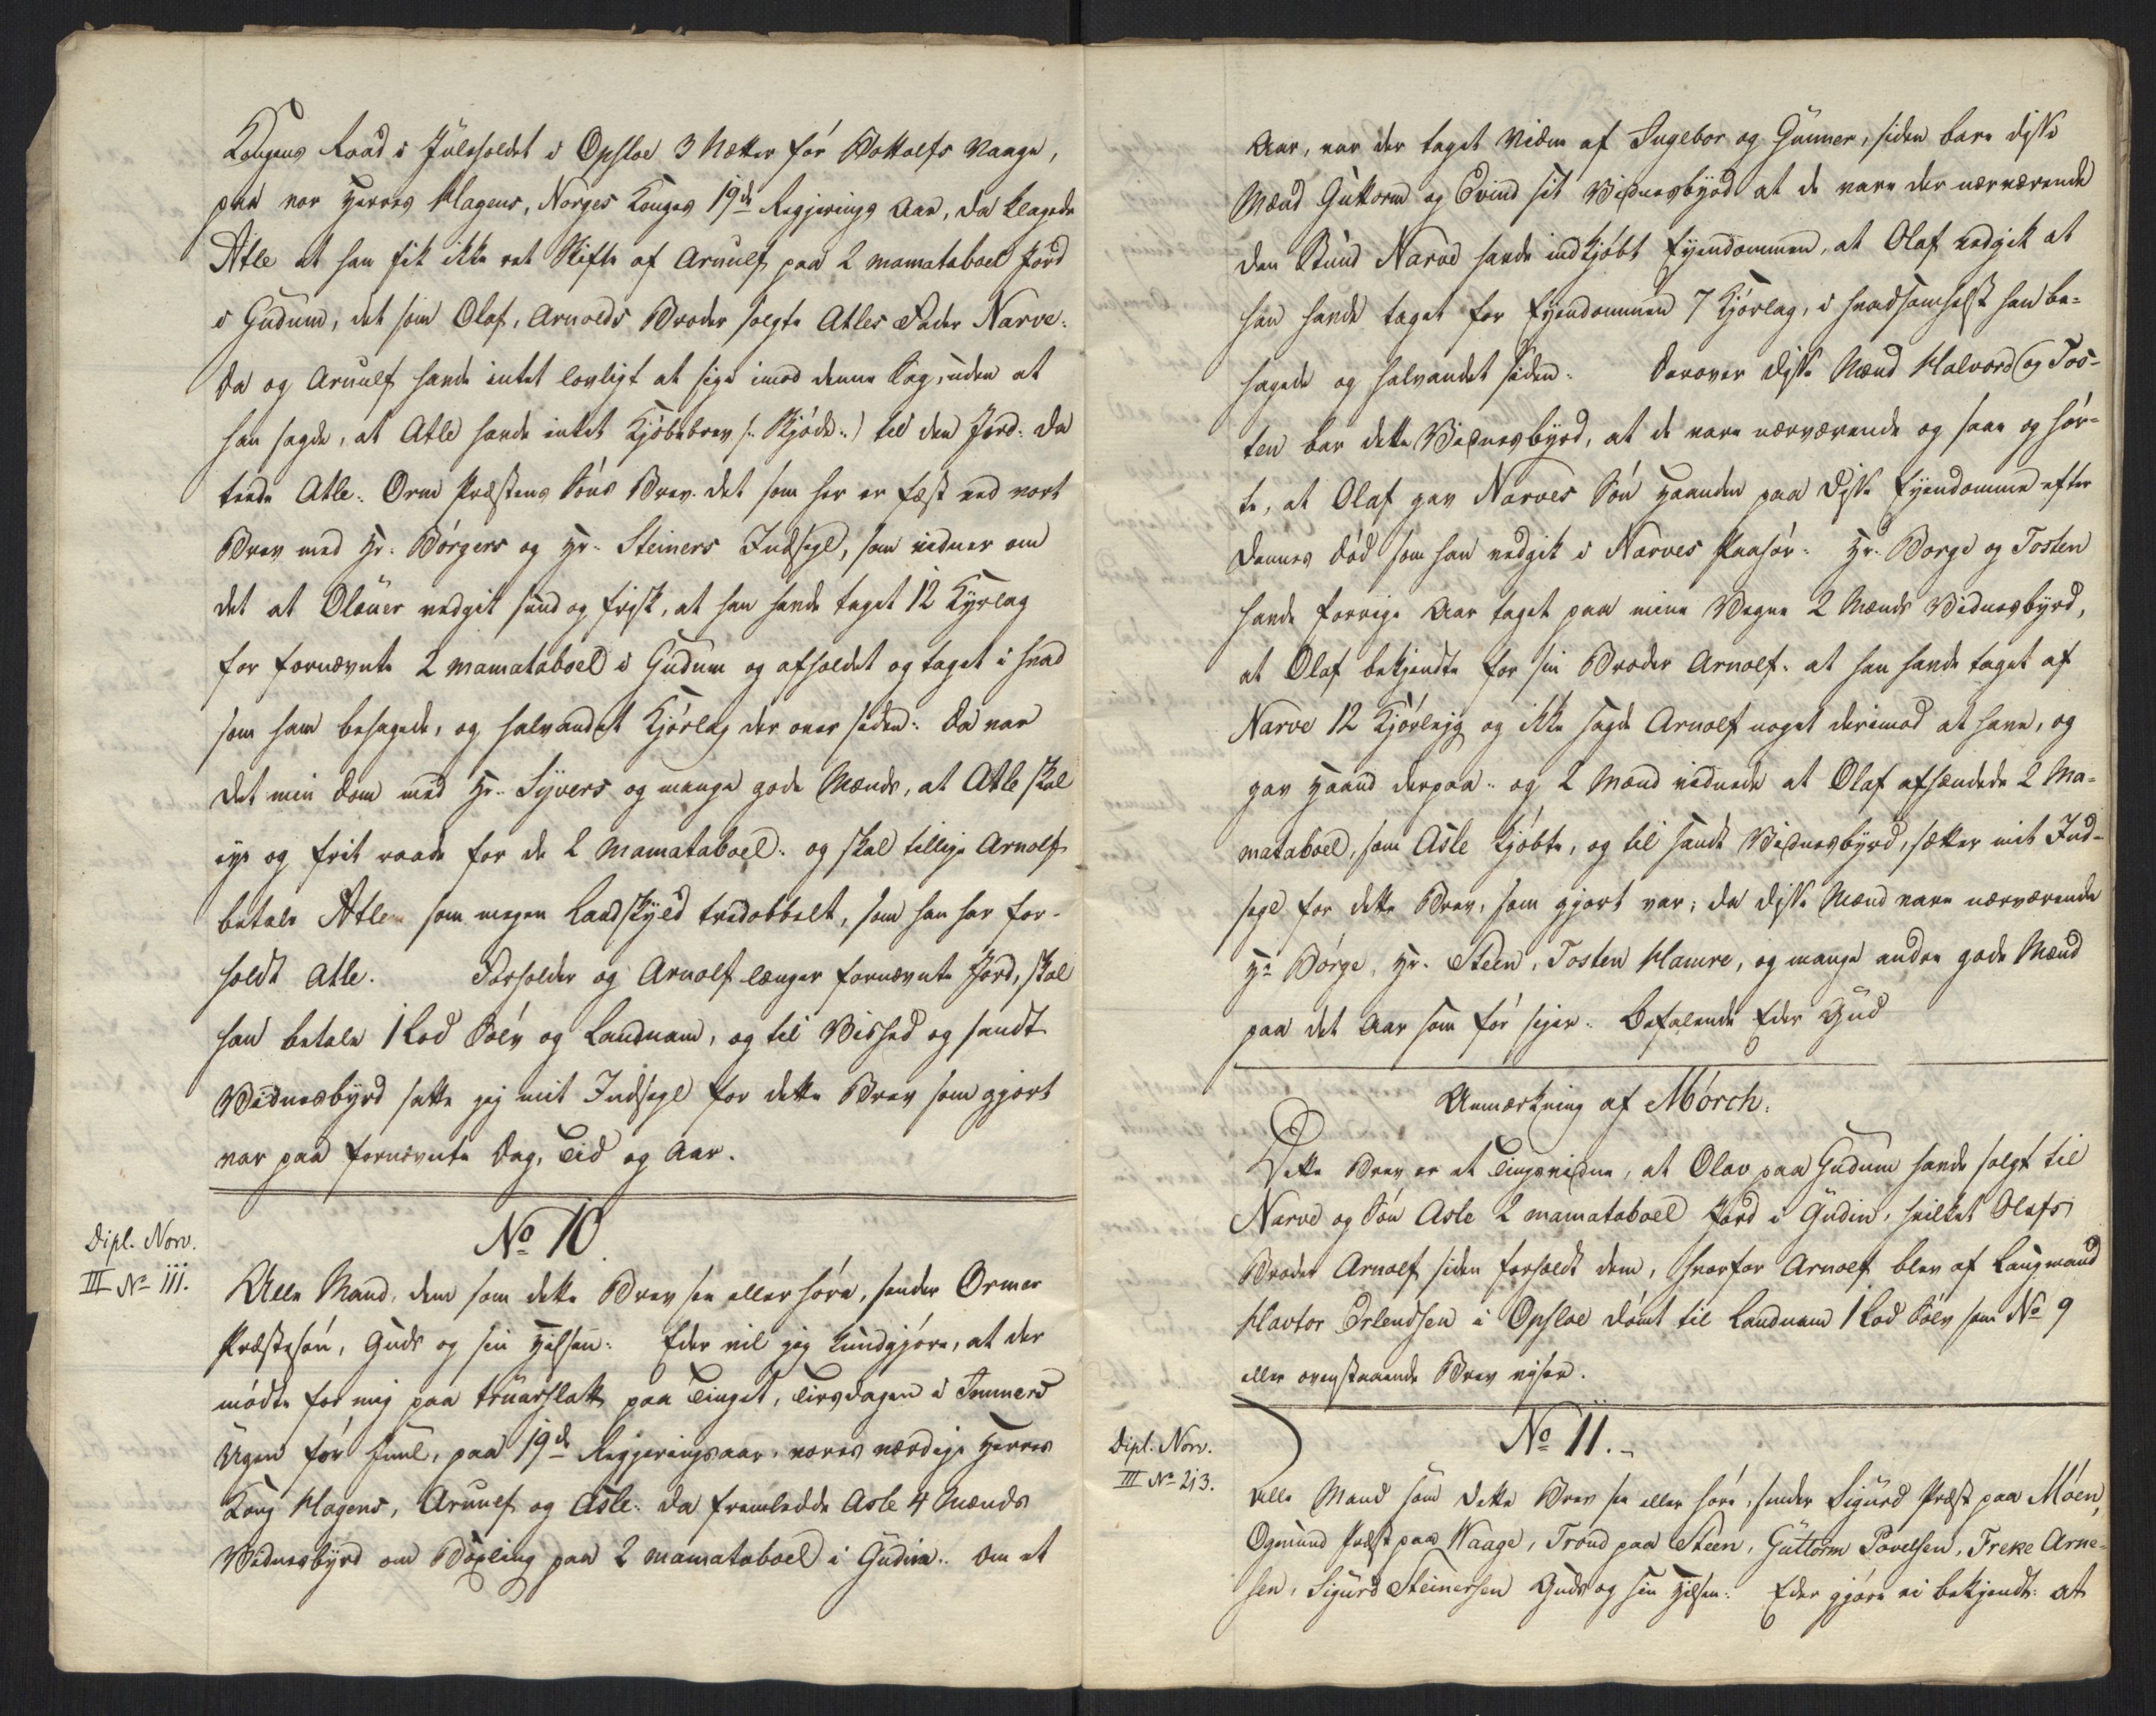 Kongens Raad i Juleholdet i Opsloe 3 Nætter før Bottolfs Vaage,
paa vor Herres Hagens, Norges Konges 19de Regjerings Aar, da klagede
Atle at han fik ikke ret Skifte af Arnulf paa 2 mamataboel Jord
i Gudum, det som Olaf, Arnolds Broder solgte Atles Fader Narve.
Da og Arnulf havde intet lovligt at sige imod denne Sag, uden at
han sagde, at Atle havde intet Kjøbebrev /: Skjøde :/ til den Jord. Da
teede Atle: Orm Præstens Søns Brev. det som her er fæst ved vort
Brev med Hr. Børgers og Hr. Steiners Indsegl, som vidner om
det at Olauer vedgik sund og frisk, at han havde taget 12 Kyrlag
for fornævnte 2 mamataboel i Gudum og afholdet og taget i hvad
som ham behagede, og halvandet Kjørlag der over siden: Da var
det min Dom med Hr. Syvers og mange gode Mænds, at Atle skal
eye og frit raade for de 2 Mamataboel: og skal tillige Arnolf
betale Atle som megen Landskyld tredobbelt, som han har for-
holdt Atle. Forholder og Arnolf længer fornævnte Jord, skal
han betale 1 Lod Sølv og Landnam, og til Vished og sandt
Vidnesbyrd satte jeg mit Indsegl for dette Brev som gjort
var paa fornævnte Dag, Tid og Aar.
No 10.
Dipl. Norv.
III No 111.
Alle Mand, dem som dette Brev see eller høre, sender Ormer
Præstesøn, Guds og sin Hilsen: Eder vil jeg kundgjøre, at der
mødte for mig paa Truarslatt paa Tinget, Tirsdagen i Immers
Ugen før Juul, paa 19de Regjeringsaar, vores værdige Herres
Kong Hagens, Arnulf og Asle: da framledde Asle 4 Mænds
Vidnesbyrd om Bøxling paa 2 mamataboel i Gudin.. Om et
Aar, var der taget Vidne af Ingebor og Gunner, siden bare disse
Mænd Guttorm og Evind sit Vidnesbyrd at de vare der nærværende
den Stund Narve havde indkjøbt Eyendommen, at Olaf vedgik at
han havde taget for Eyendommen 7 Kjørlag, i hvadsomhelst han be-
hagede og halvandet siden: Derover disse Mænd Halvord og Tos-
ten bar dette Vidnesbyrd, at de vare nærværende og saae og hør-
te, at Olaf gav Narves Søn Haanden paa disse Eyendomme efter
dennes død som han vedgik i Narves Paahør: Hr. Borge og Tosten
havde forrige Aar taget paa mine Vegne 2 Mænds Vidnesbyrd,
at Olaf bekjendte for sin Broder Arnolf: at han havde taget af
Narve 12 Kjørlejg og ikke sagde Arnolf noget derimod at have, og
gav Haand derpaa: og 2 Mænd vidnede at Olaf afhendede 2 Ma-
mataboel, som Asle kjøbte, og til sandt Vidnesbyrd, sætter mit Ind-
segl for dette Brev, som gjort var; da disse Mænd vare nærværende
Hr Børge, Hr. Steen, Tosten Hamre, og mange andre gode Mænd
paa det Aar som før siger. Befalende Eder Gud
Anmærkning af Mørch.
Dette Brev er et Tingsvidne, at Olav paa Gudum havde solgt til
Narve og Søn Asle 2 mamataboel Jord i Gudin, hvilket Olafs
Broder Arnolf siden forholdt dem, hvorfor Arnolf blev af Laugmand
Havtor Erlendsen i Opsloe dømt til Landnam 1 Lod Sølv som No 9
eller ovenstaaende Brev viser.
No 11.
Dipl. Norv.
III No 213.
Alle Mand som dette Brev see eller høre, sender Sigurd Præst paa Móen,
Ogmund Præst paa Waage, Trond paa Steen, Guttorm Povelsen, Freke Arne-
sen, Sigurd Steinersen Guds og sin Hilsen: Eder gjøre vi bekjendt: at